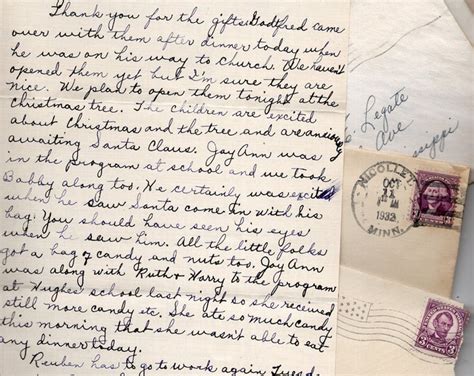 Thank you for the gifts. Godfred came
over with them after dinner today when
he was on his way to church. We haven't
opened them yet but I'm sure they are
nice. We plan to open them tonight at the
christmas tree. The children are excited
about Christmas and the tree and are anxiously
awaiting Santa Claus. Joy Ann was
in the program at school and we took
Bobby along too. He certainly was excited
when he saw Santa come in with his
bag. You should have seen his eyes
when he saw him. All the little folks
got a bag of candy and nuts too. Joy Ann
was along with Ruth & Harry to the program
at Hughes' school last night so she received
still more candy etc. She ate so much candy
this morning that she wasn't able to eat
any dinner today.
Reuben has to go to work again Tuesd.
Legate
Ave
NICOLLET
OCT
11
1932
MINN.
3 CENTS 3